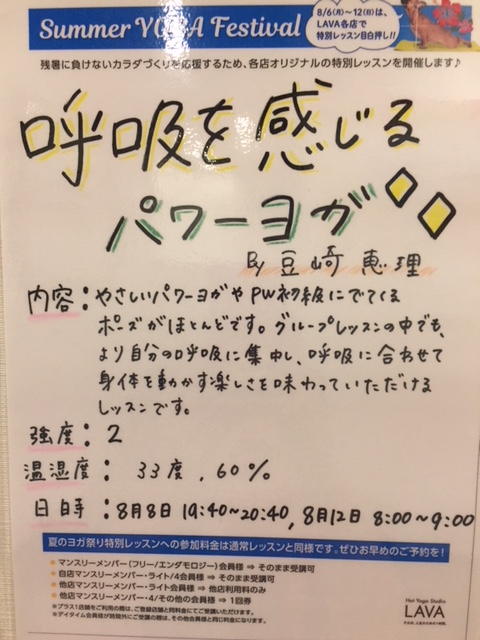 Summer YOGA Festival
8/6(月)~12(日)は、
LAVA各店で
特別レッスン目白押し!!
残暑に負けないカラダづくりを応援するため、各店オリジナルの特別レッスンを開催します♪
呼吸を感じる
パワーヨガ
By 豆崎 恵理
内容: やさしいパワーヨガやPW初級にでてくる
ポーズがほとんどです。グループレッスンの中でも、
より自分の呼吸に集中し、呼吸に合わせて
身体を動かす楽しさを味わっていただける
レッスンです。
強度: 2
温湿度: 33度, 60%
日時: 8月8日 19:40~20:40, 8月12日 8:00~9:00
夏のヨガ祭り特別レッスンへの参加料金は通常レッスンと同様です。ぜひお早めのご予約を!
マンスリーメンバー(フリー/エンダモロジー)会員様 ⇒ そのまま受講可
自店マンスリーメンバー・ライト/4会員様 ⇒ そのまま受講可
他店マンスリーメンバー・ライト会員様 ⇒ 他店利用料のみ
他店マンスリーメンバー・4/その他の会員様 ⇒ 1回券
*プラス1店舗をご利用の際は、ご登録店舗と同料金にてご受講いただけます。
*デイタイム会員様が時間外にご受講の際は、その他会員様と同じ料金になります。
Hot Yoga Studio
LAVA